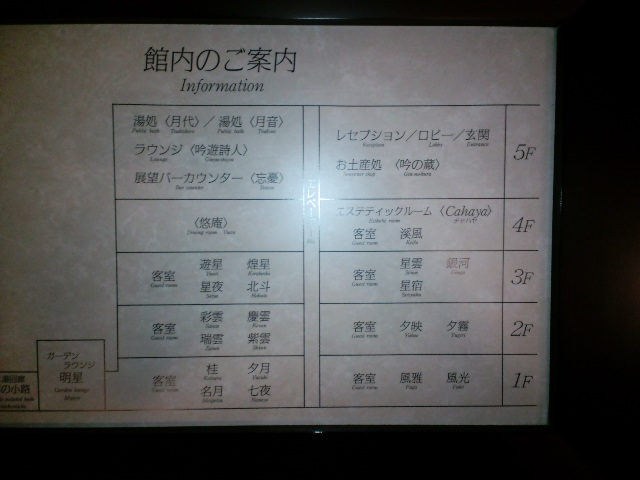 館内のご案内
Information
湯処〈月代〉／湯処〈月音〉
Public bath Public bath
ラウンジ〈吟遊詩人〉
Lounge
展望バーカウンター〈忘憂〉
Bar counter
レセプション／ロビー／玄関
Reception Lobby Entrance
お土産処〈吟の蔵〉
Souvenir shop
5F
〈悠庵〉
Dining room
エステティックルーム〈Cahaya〉
Esthetic room チャハヤ
客室 渓風
Guest room
4F
客室 遊星 煌星
Guest room
星夜 北斗
客室 星雲 銀河
Guest room
星宿
3F
客室 彩雲 慶雲
Guest room
瑞雲 紫雲
客室 夕映 夕霧
Guest room
2F
客室 桂 夕月
Guest room
名月 七夜
客室 風雅 風光
Guest room
1F
エレベーター
ガーデン
ラウンジ
明星
Garden lounge
の小路